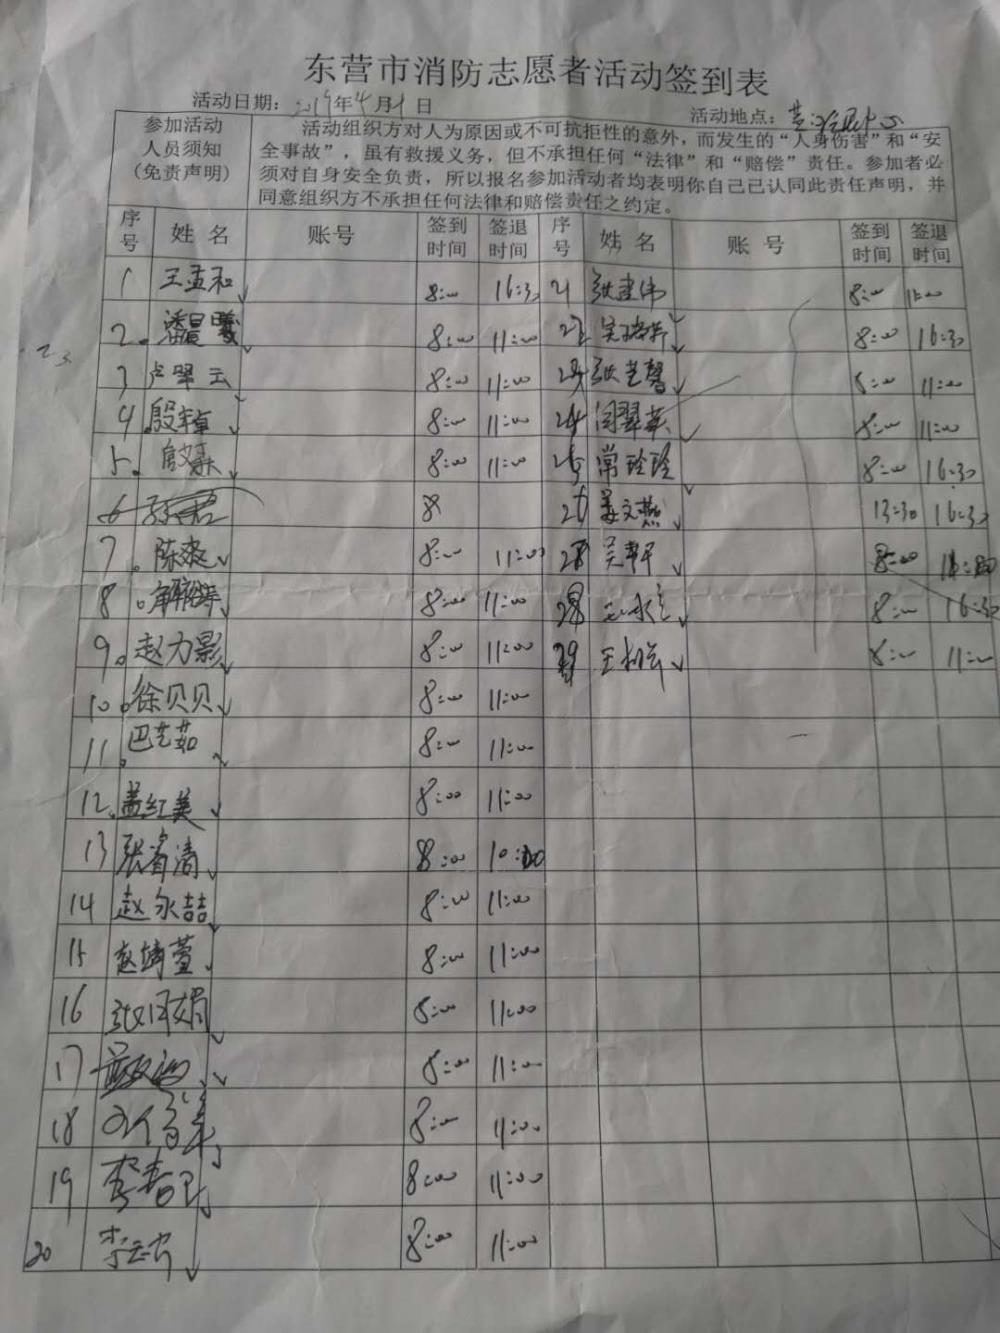 东营市消防志愿者活动签到表
活动日期：2019年4月1日 活动地点：
参加活动
人员须知
(免责声明)
活动组织方对人为原因或不可抗拒性的意外，而发生的“人身伤害”和“安
全事故”，虽有救援义务，但不承担任何“法律”和“赔偿”责任。参加者必
须对自身安全负责，所以报名参加活动者均表明你自己已认同此责任声明，并
同意组织方不承担任何法律和赔偿责任之约定。
序号 姓名 账号 签到时间 签退时间 序号 姓名 账号 签到时间 签退时间
1 王孟和 8:00 16:30 21 张建伟 8:00 11:00
2. 潘晨曦 8:00 11:00 22 8:00 16:30
3 卢翠云 8:00 11:00 23 张艺馨 8:00 11:00
4. 8:00 11:00 24 闫翠英 8:00 11:00
5. 8:00 11:00 25 常玲玲 8:00 16:30
6 8 26 姜文燕 13:30 16:30
7. 陈爽 8:00 11:00 27 8:00
8. 8:00 11:00 28 8:00 16:30
9. 赵力影 8:00 11:00 29 8:00 11:00
10. 徐贝贝 8:00 11:00
11. 巴艺茹 8:00 11:00
12. 盖红美 8:00 11:00
13 张睿清 8:00 10:00
14 赵永喆 8:00 11:00
15 赵靖萱 8:00 11:00
16 8:00 11:00
17 8:00 11:00
18 8:00 11:00
19 8:00 11:00
20 8:00 11:00